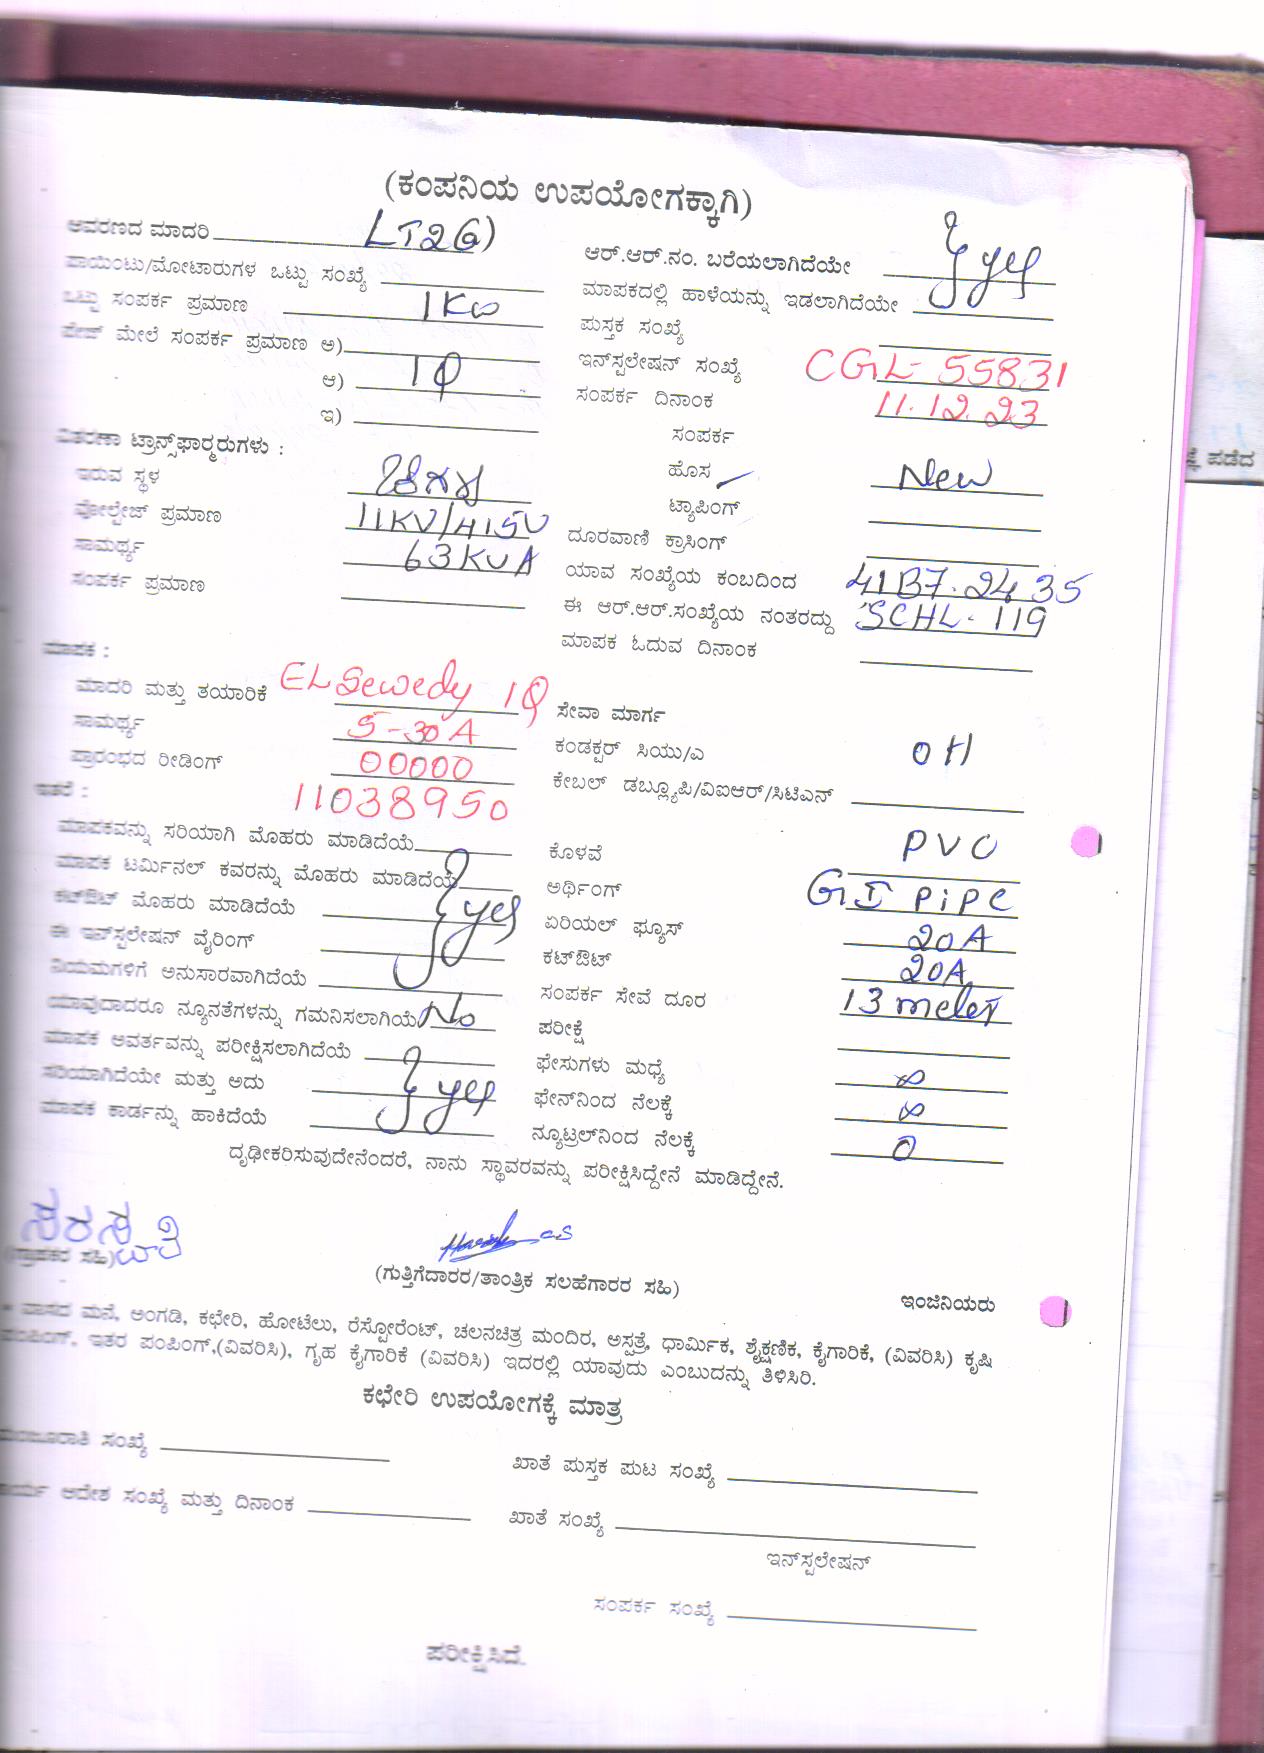 (ಕಂಪನಿಯ ಉಪಯೋಗಕ್ಕಾಗಿ)
ಆವರಣದ ಮಾದರಿ LT2(a)
ಪಾಯಿಂಟು/ಮೋಟಾರುಗಳ ಒಟ್ಟು ಸಂಖ್ಯೆ
ಒಟ್ಟು ಸಂಪರ್ಕ ಪ್ರಮಾಣ 1KW
ಪೇಜ್ ಮೇಲೆ ಸಂಪರ್ಕ ಪ್ರಮಾಣ ಅ)
ಆ) 1Φ
ಇ)
ವಿತರಣಾ ಟ್ರಾನ್ಸ್‌ಫಾರ್‍ಮರುಗಳು :
ಇರುವ ಸ್ಥಳ
ವೋಲ್ಟೇಜ್ ಪ್ರಮಾಣ 11KV/415V
ಸಾಮರ್ಥ್ಯ 63KVA
ಸಂಪರ್ಕ ಪ್ರಮಾಣ
ಮಾಪಕ :
ಮಾದರಿ ಮತ್ತು ತಯಾರಿಕೆ EL Sewedy 1Φ
ಸಾಮರ್ಥ್ಯ 5-30A
ಪ್ರಾರಂಭದ ರೀಡಿಂಗ್ 00000
ಇತರೆ : 11038950
ಮಾಪಕವನ್ನು ಸರಿಯಾಗಿ ಮೊಹರು ಮಾಡಿದೆಯೆ
ಮಾಪಕ ಟರ್ಮಿನಲ್ ಕವರನ್ನು ಮೊಹರು ಮಾಡಿದೆಯೆ
ಕಟ್‌ಔಟ್ ಮೊಹರು ಮಾಡಿದೆಯೆ } yes
ಈ ಇನ್‌ಸ್ಟಲೇಷನ್ ವೈರಿಂಗ್
ನಿಯಮಗಳಿಗೆ ಅನುಸಾರವಾಗಿದೆಯೆ
ಯಾವುದಾದರೂ ನ್ಯೂನತೆಗಳನ್ನು ಗಮನಿಸಲಾಗಿಯೆ No
ಮಾಪಕ ಆವರ್ತವನ್ನು ಪರೀಕ್ಷಿಸಲಾಗಿದೆಯೆ
ಸರಿಯಾಗಿದೆಯೇ ಮತ್ತು ಅದು } yes
ಮಾಪಕ ಕಾರ್ಡನ್ನು ಹಾಕಿದೆಯೆ
ಆರ್.ಆರ್.ನಂ. ಬರೆಯಲಾಗಿದೆಯೇ } yes
ಮಾಪಕದಲ್ಲಿ ಹಾಳೆಯನ್ನು ಇಡಲಾಗಿದೆಯೇ
ಪುಸ್ತಕ ಸಂಖ್ಯೆ
ಇನ್‌ಸ್ಟಲೇಷನ್ ಸಂಖ್ಯೆ CGL-55831
ಸಂಪರ್ಕ ದಿನಾಂಕ 11.12.23
ಸಂಪರ್ಕ
ಹೊಸ New
ಟ್ಯಾಪಿಂಗ್
ದೂರವಾಣಿ ಕ್ರಾಸಿಂಗ್
ಯಾವ ಸಂಖ್ಯೆಯ ಕಂಬದಿಂದ 41B7.2435
ಈ ಆರ್.ಆರ್.ಸಂಖ್ಯೆಯ ನಂತರದ್ದು SCHL-119
ಮಾಪಕ ಓದುವ ದಿನಾಂಕ
ಸೇವಾ ಮಾರ್ಗ
ಕಂಡಕ್ಟರ್ ಸಿಯು/ಎ OH
ಕೇಬಲ್ ಡಬ್ಲ್ಯೂಪಿ/ವಿಐಆರ್/ಸಿಟಿಎನ್
ಕೊಳವೆ PVC
ಅರ್ಥಿಂಗ್ GI PiPe
ಏರಿಯಲ್ ಫ್ಯೂಸ್ 20A
ಕಟ್‌ಔಟ್ 20A
ಸಂಪರ್ಕ ಸೇವೆ ದೂರ 13 meter
ಪರೀಕ್ಷೆ
ಫೇಸುಗಳು ಮಧ್ಯೆ ∞
ಫೇನ್‌ನಿಂದ ನೆಲಕ್ಕೆ ∞
ನ್ಯೂಟ್ರಲ್‌ನಿಂದ ನೆಲಕ್ಕೆ 0
ದೃಢೀಕರಿಸುವುದೇನೆಂದರೆ, ನಾನು ಸ್ಥಾವರವನ್ನು ಪರೀಕ್ಷಿಸಿದ್ದೇನೆ ಮಾಡಿದ್ದೇನೆ.
ಸರಸ್ವತಿ
(ಗ್ರಾಹಕರ ಸಹಿ)
(ಗುತ್ತಿಗೆದಾರರ/ತಾಂತ್ರಿಕ ಸಲಹೆಗಾರರ ಸಹಿ)
ಇಂಜಿನಿಯರು
* ವಾಸದ ಮನೆ, ಅಂಗಡಿ, ಕಛೇರಿ, ಹೋಟೆಲು, ರೆಸ್ಟೋರೆಂಟ್, ಚಲನಚಿತ್ರ ಮಂದಿರ, ಅಸ್ಪತ್ರೆ, ಧಾರ್ಮಿಕ, ಶೈಕ್ಷಣಿಕ, ಕೈಗಾರಿಕೆ, (ವಿವರಿಸಿ) ಕೃಷಿ
ಪಂಪಿಂಗ್, ಇತರ ಪಂಪಿಂಗ್,(ವಿವರಿಸಿ), ಗೃಹ ಕೈಗಾರಿಕೆ (ವಿವರಿಸಿ) ಇದರಲ್ಲಿ ಯಾವುದು ಎಂಬುದನ್ನು ತಿಳಿಸಿರಿ.
ಕಛೇರಿ ಉಪಯೋಗಕ್ಕೆ ಮಾತ್ರ
ಮಂಜೂರಾತಿ ಸಂಖ್ಯೆ
ಖಾತೆ ಪುಸ್ತಕ ಪುಟ ಸಂಖ್ಯೆ
ಕಾರ್ಯ ಆದೇಶ ಸಂಖ್ಯೆ ಮತ್ತು ದಿನಾಂಕ
ಖಾತೆ ಸಂಖ್ಯೆ
ಇನ್‌ಸ್ಟಲೇಷನ್
ಸಂಪರ್ಕ ಸಂಖ್ಯೆ
ಪರೀಕ್ಷಿಸಿದೆ.
ಪಡೆದ